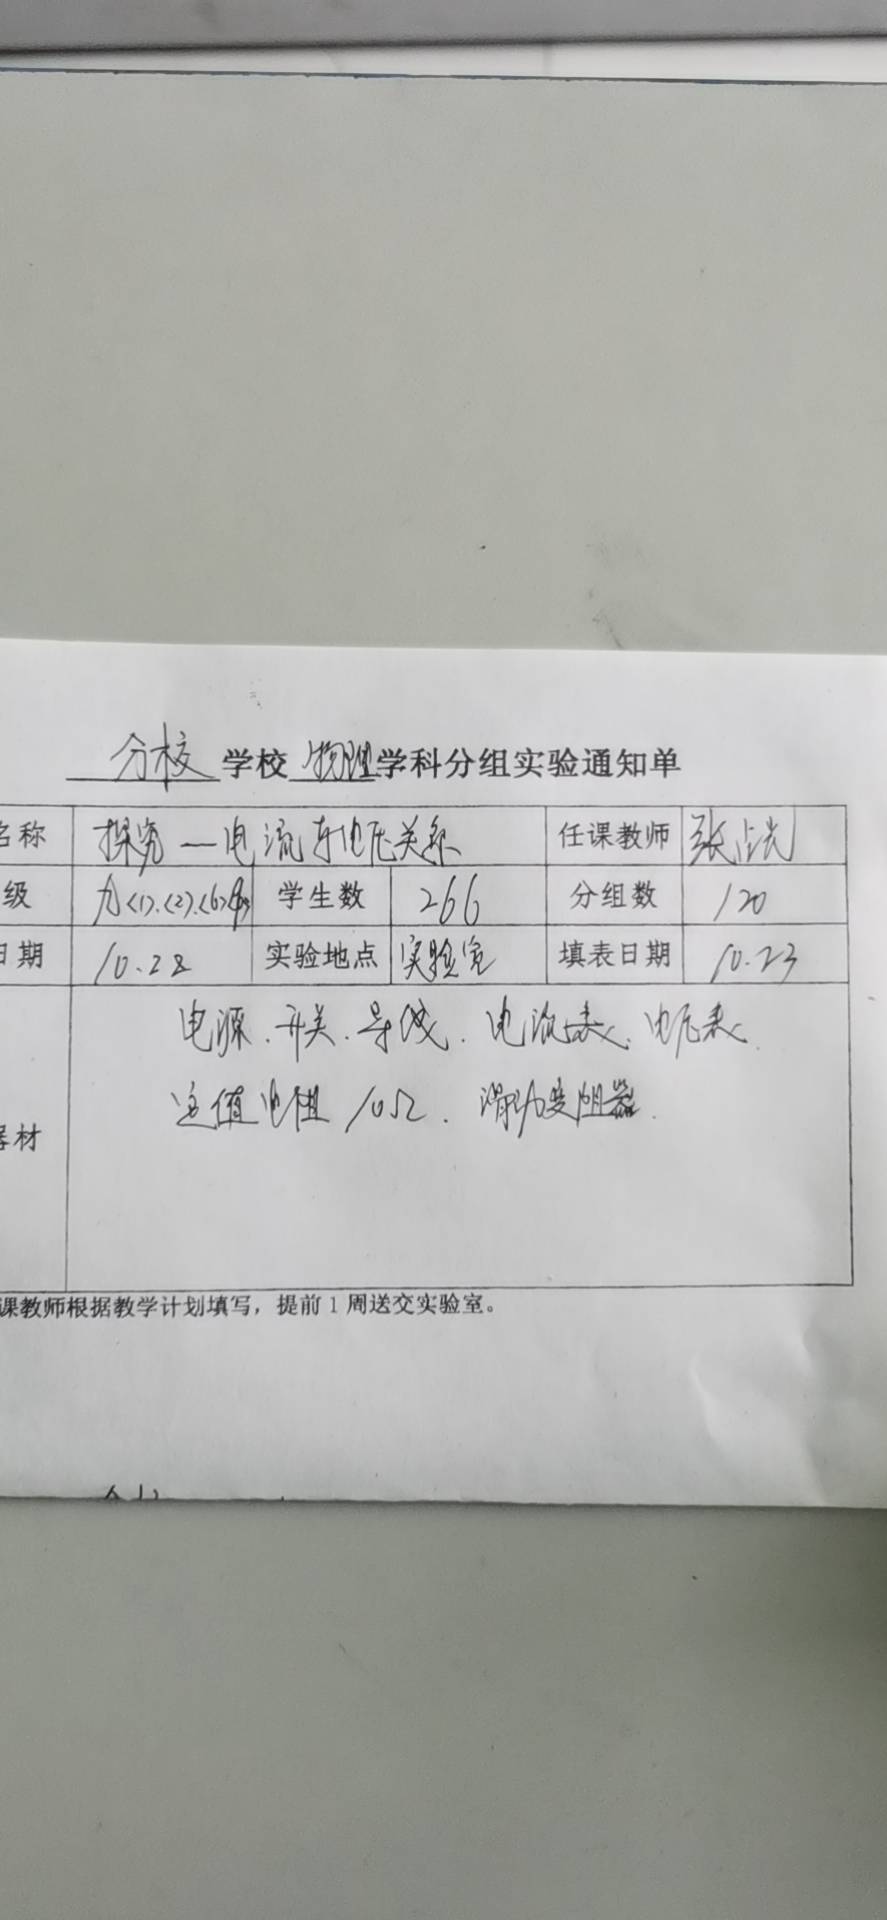 分校学校物理学科分组实验通知单
名称 探究—电流与电压关系 任课教师 张
级 九(1).(2).(6) 学生数 266 分组数 120
日期 10.28 实验地点 实验室 填表日期 10.23
器材 电源.开关.导线.电流表.电压表.
定值电阻10Ω.滑动变阻器.
课教师根据教学计划填写，提前1周送交实验室。